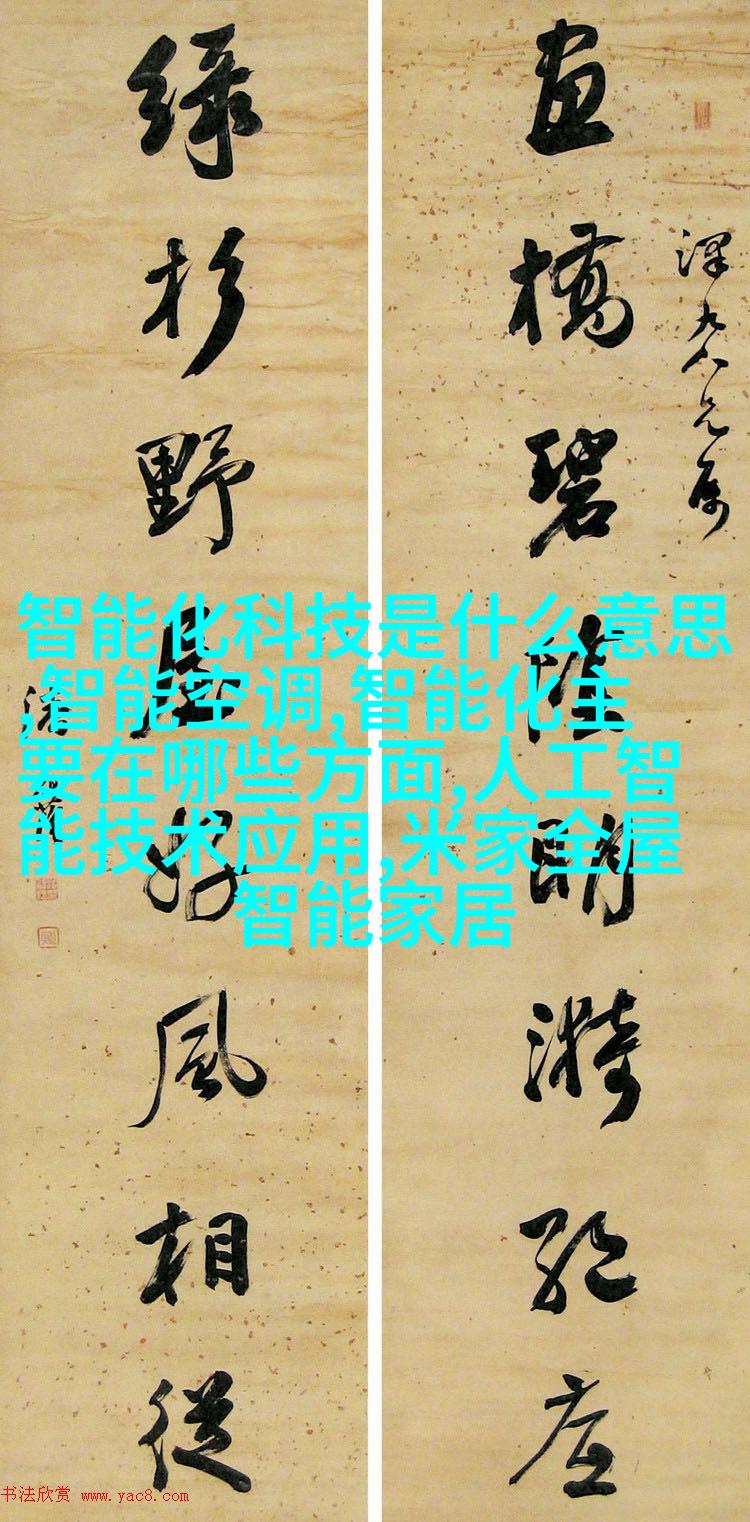 畫橋碧陰明漪絕底
兄屬
綠杉野
好風相從
智能化科技是什么意思
,智能空调,智能化主
要在哪些方面,人工智
能技术应用,米家全屋
智能家居
书法欣赏 www.yac8.com